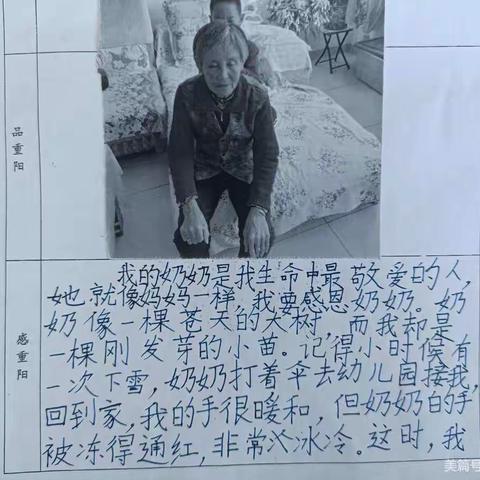 品重阳
感重阳
我的奶奶是我生命中最敬爱的人,
她就像妈妈一样,我要感恩奶奶。奶
奶像一棵苍天的大树,而我却是
一棵刚发芽的小苗。记得小时候有
一次下雪,奶奶打着伞去幼儿园接我,
回到家,我的手很暖和,但奶奶的手
被冻得通红,非常冰冷。这时,我
美篇号